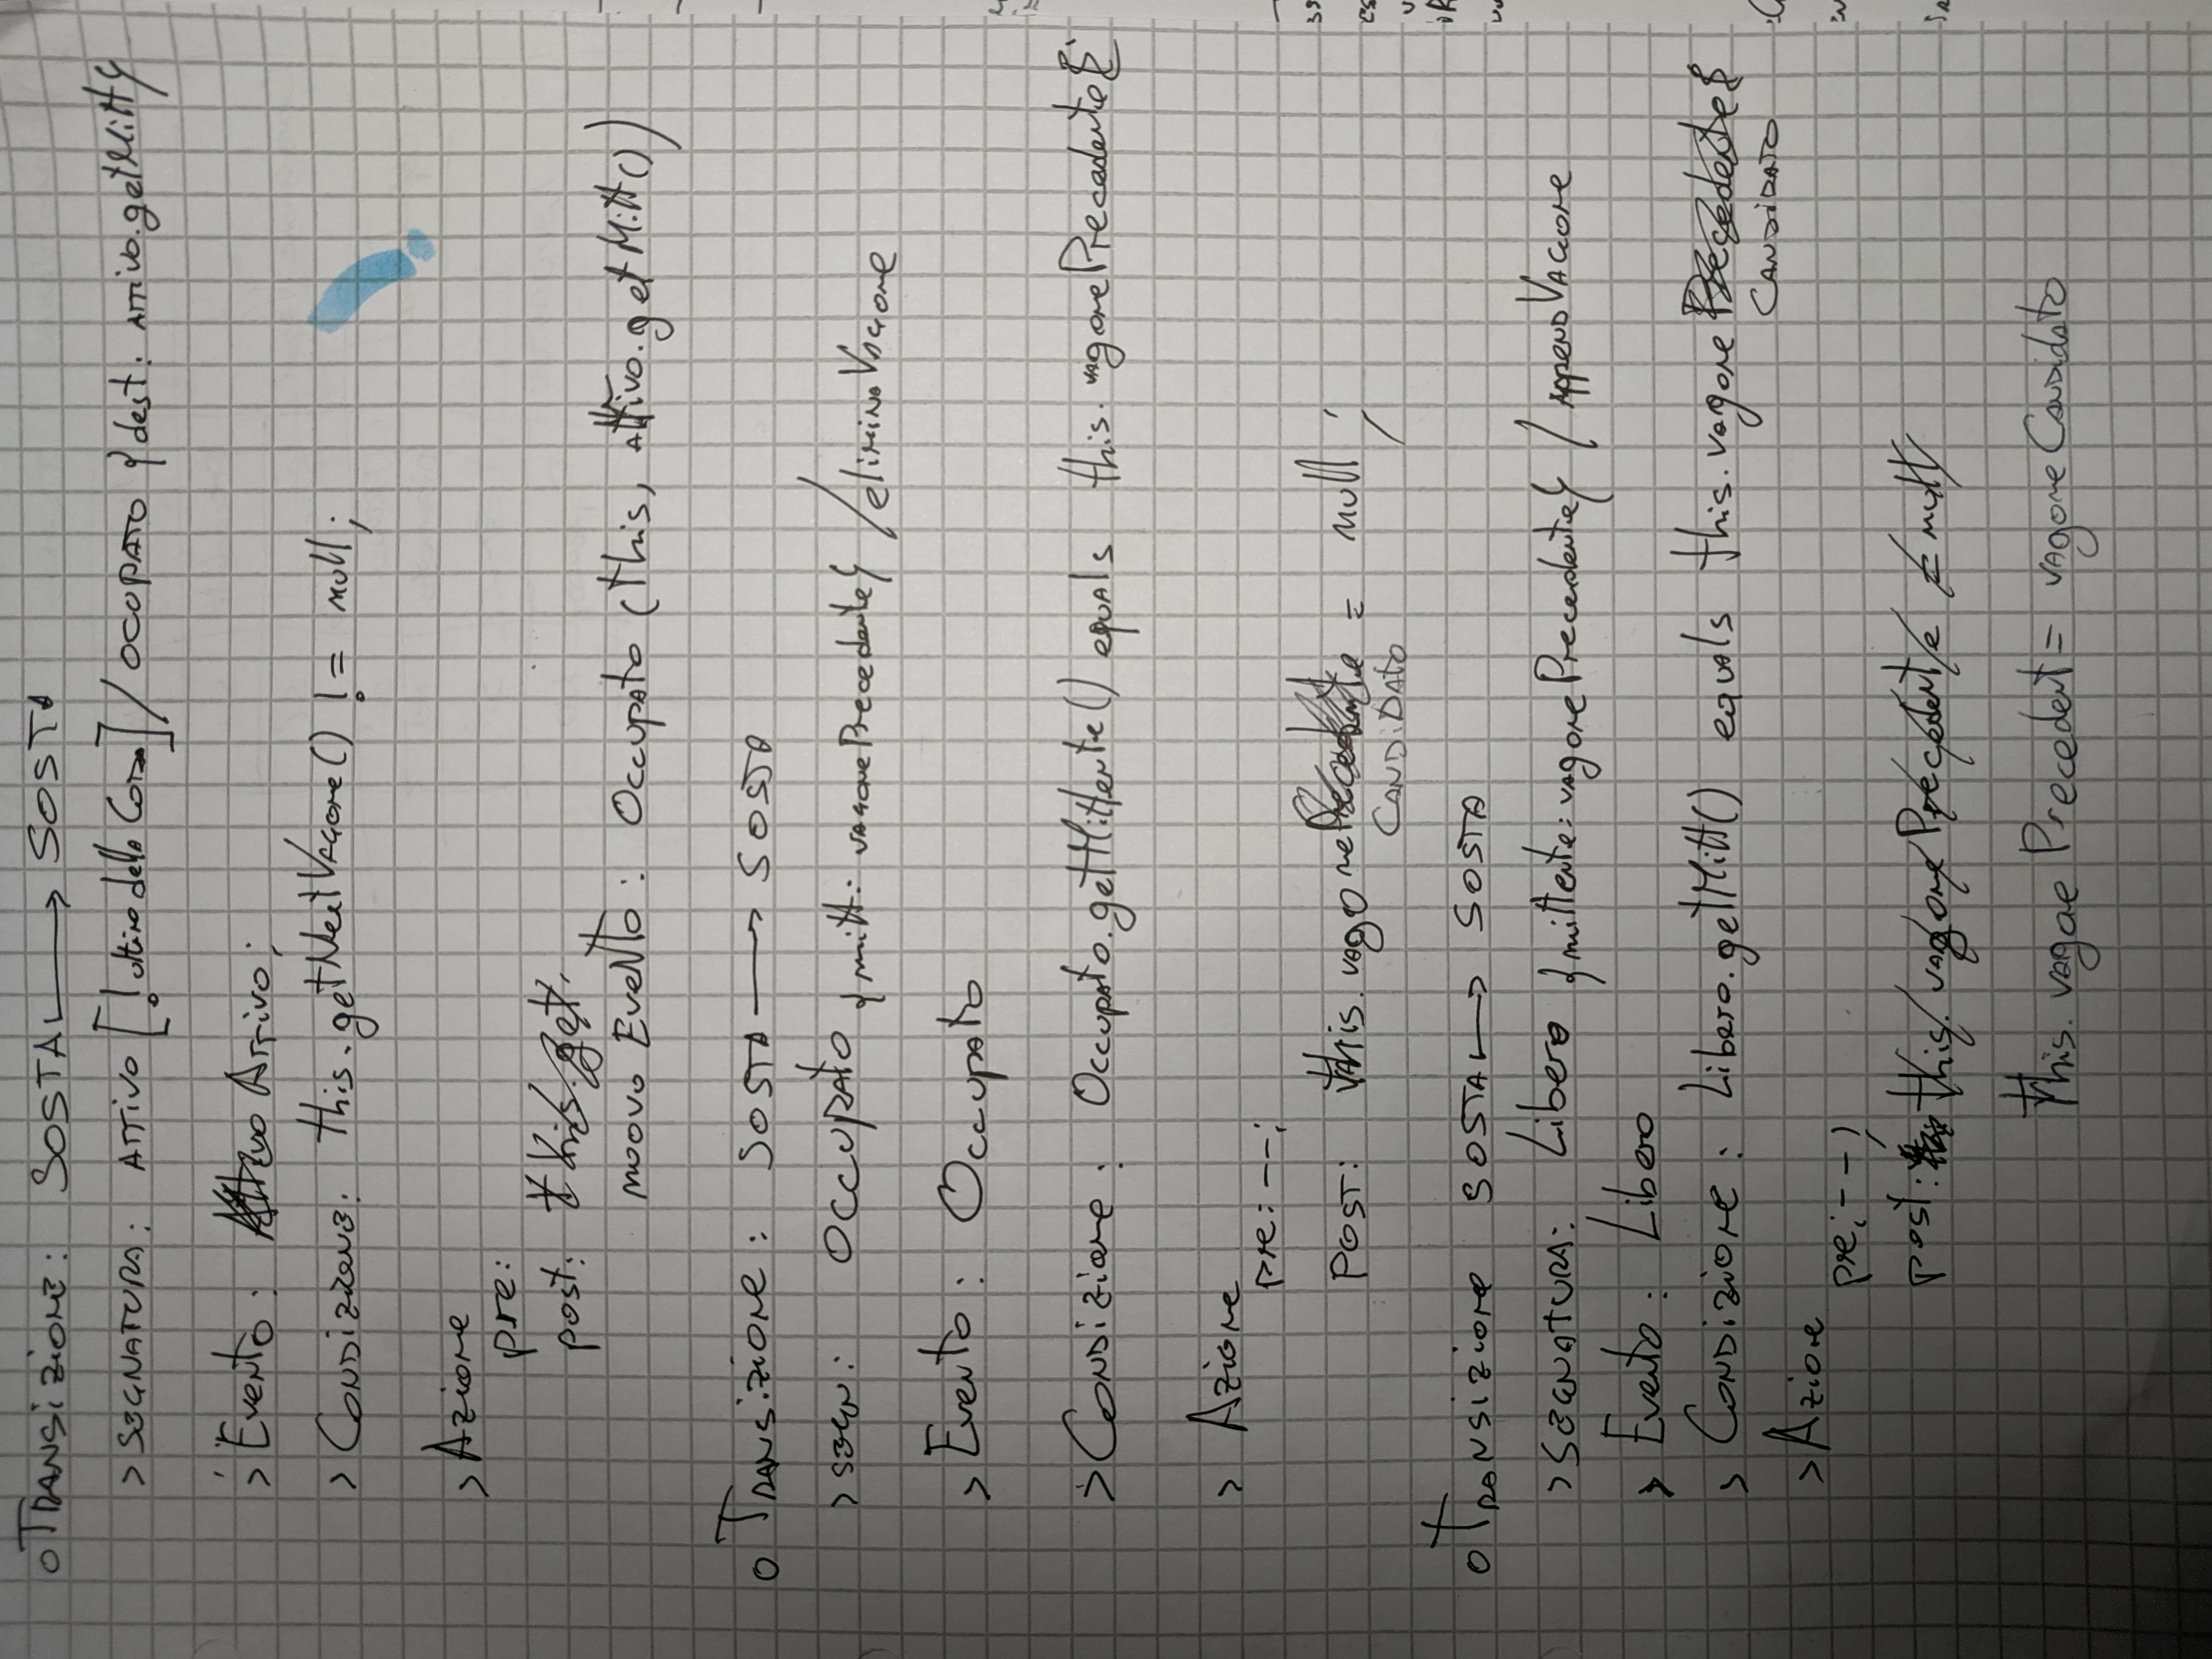 o Transizione: SOSTA → SOSTA
> SEGNATURA: Arrivo [! ultimo della Coda] / OCCUPATO { dest: Arrivo.getMitt}
> Evento: Arrivo;
> Condizione: this.getNextVagone() != null;
> Azione
pre:
post: this.get.
nuovo Evento: Occupato (this, Attivo.getMitt())
o Transizione: SOSTA → SOSTA
> segn: Occupato {mitt: vagonePrecedente} / eliminaVagone
> Evento: Occupato
> Condizione: Occupato.getMittente() equals this.vagonePrecedente
> Azione
pre: --;
POST: this.vagone = null;
CANDIDATO
o Transizione SOSTA → SOSTA
> SEGNATURA: Libero {mittente: vagonePrecedente} / AppendVagone
> Evento: Libero
> Condizione: Libero.getMitt() equals this.vagone Precedente
CANDIDATO
> Azione
pre: --;
post: this.vagonePrecedente = null
this.vagoe Precedent = vagoneCandidato